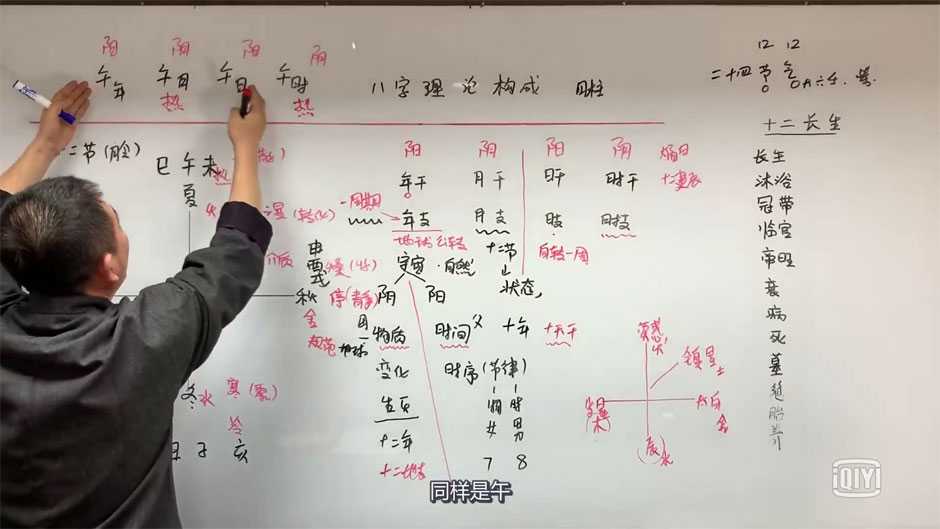 阳 阳 阳 阴
午年 午月 午日 午时
热 热
八字理论构成 四柱
12 12
二十四节气
十二长生
长生
沐浴
冠带
临官
帝旺
衰
病
死
墓
绝
胎
养
十二节(脏)
巳午未
夏
阳 阴 阳 阴
年干 月干 日干 时干
年支 月支 时支
一周期
地球公转
自转一周
宇宙·自然
十二节
状态,
申
酉
戌
秋
金
规范
停(静)
阴 阳
物质 时间 十年 十天干
变化 时序(节律)
十二年
十二地支
女 男
7 8
冬水 寒
冷
丑子亥
镇星土
太白金
木
水
同样是午
iQIYI